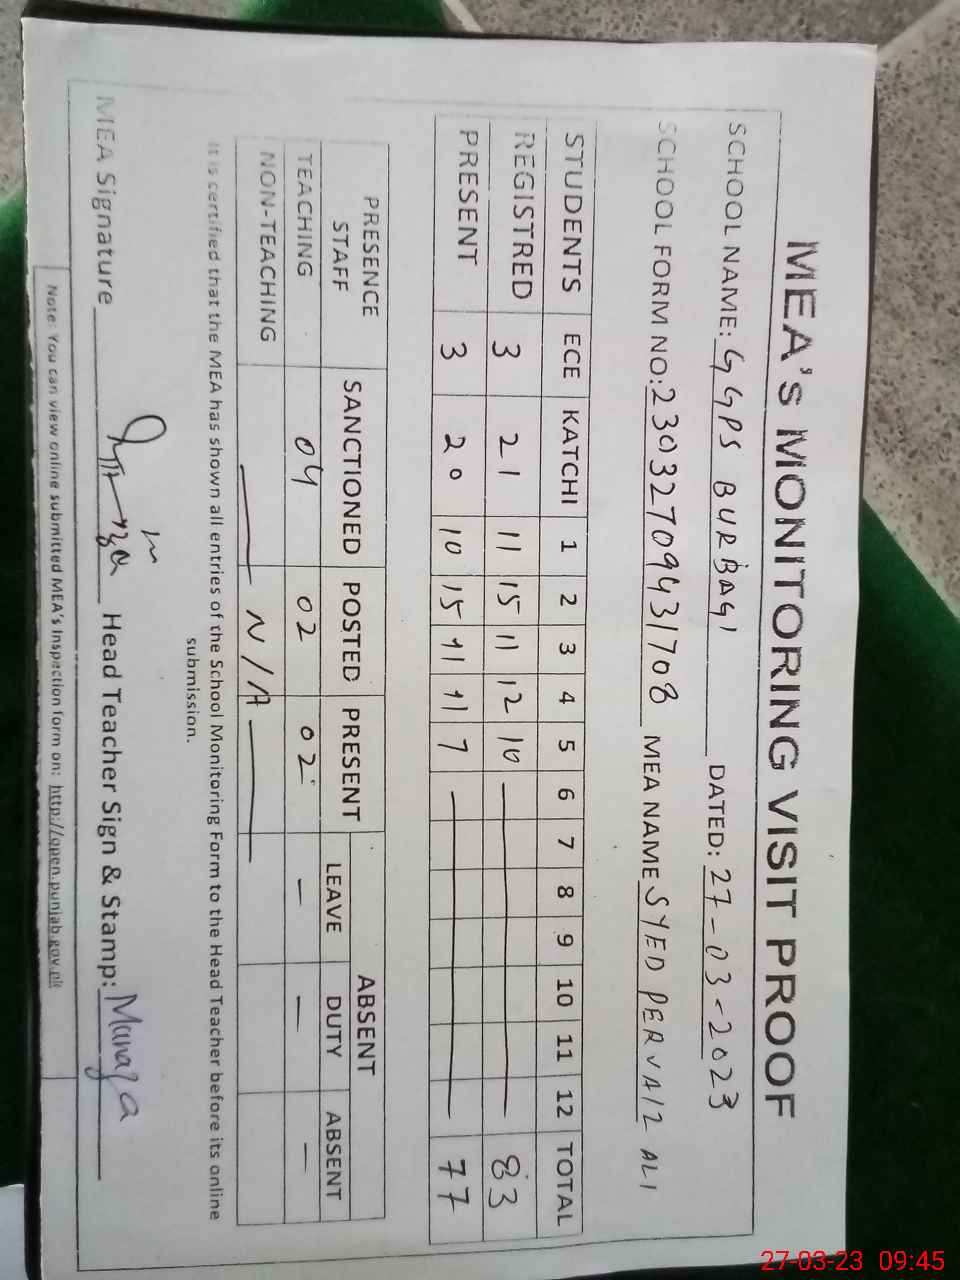 MEA's MONITORING VISIT PROOF
SCHOOL NAME: GGPS BURBAGI DATED: 27-03-2023
SCHOOL FORM NO: 23032709431708 MEA NAME SYED PERVAIZ ALI
STUDENTS ECE KATCHI 1 2 3 4 5 6 7 8 9 10 11 12 TOTAL
REGISTRED 3 21 11 15 11 12 10 — 83
PRESENT 3 20 10 15 11 11 7 — 77
PRESENCE STAFF SANCTIONED POSTED PRESENT ABSENT
LEAVE DUTY ABSENT
TEACHING 04 02 02 — — —
NON-TEACHING — N/A —
It is certified that the MEA has shown all entries of the School Monitoring Form to the Head Teacher before its online
submission.
MEA Signature Head Teacher Sign & Stamp:
Note: You can view online submitted MEA's Inspection form on: http://open.punjab.gov.pk
27-03-23 09:45